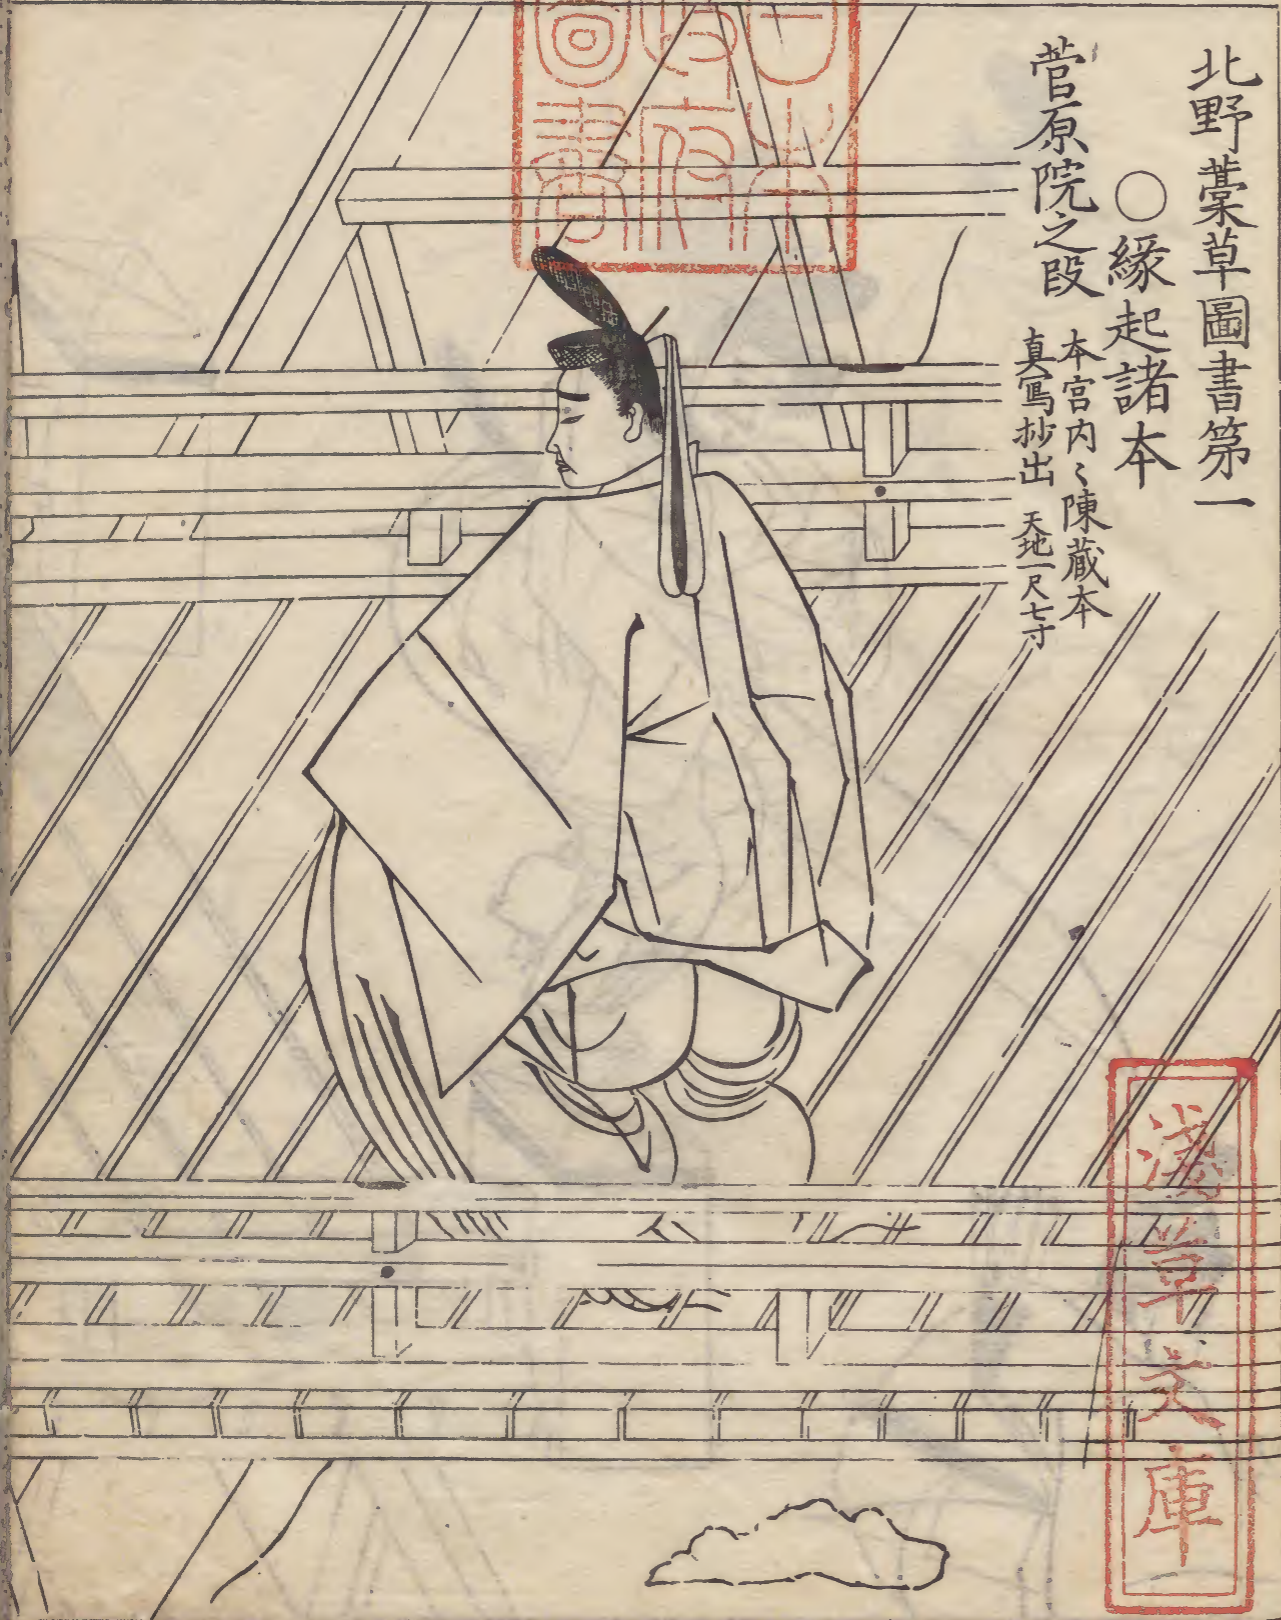 北野藁草圖書第一
〇緣起諸本
菅原院之段
本宮内々陳蔵本
真寫抄出 天地一尺七寸
淺草文庫